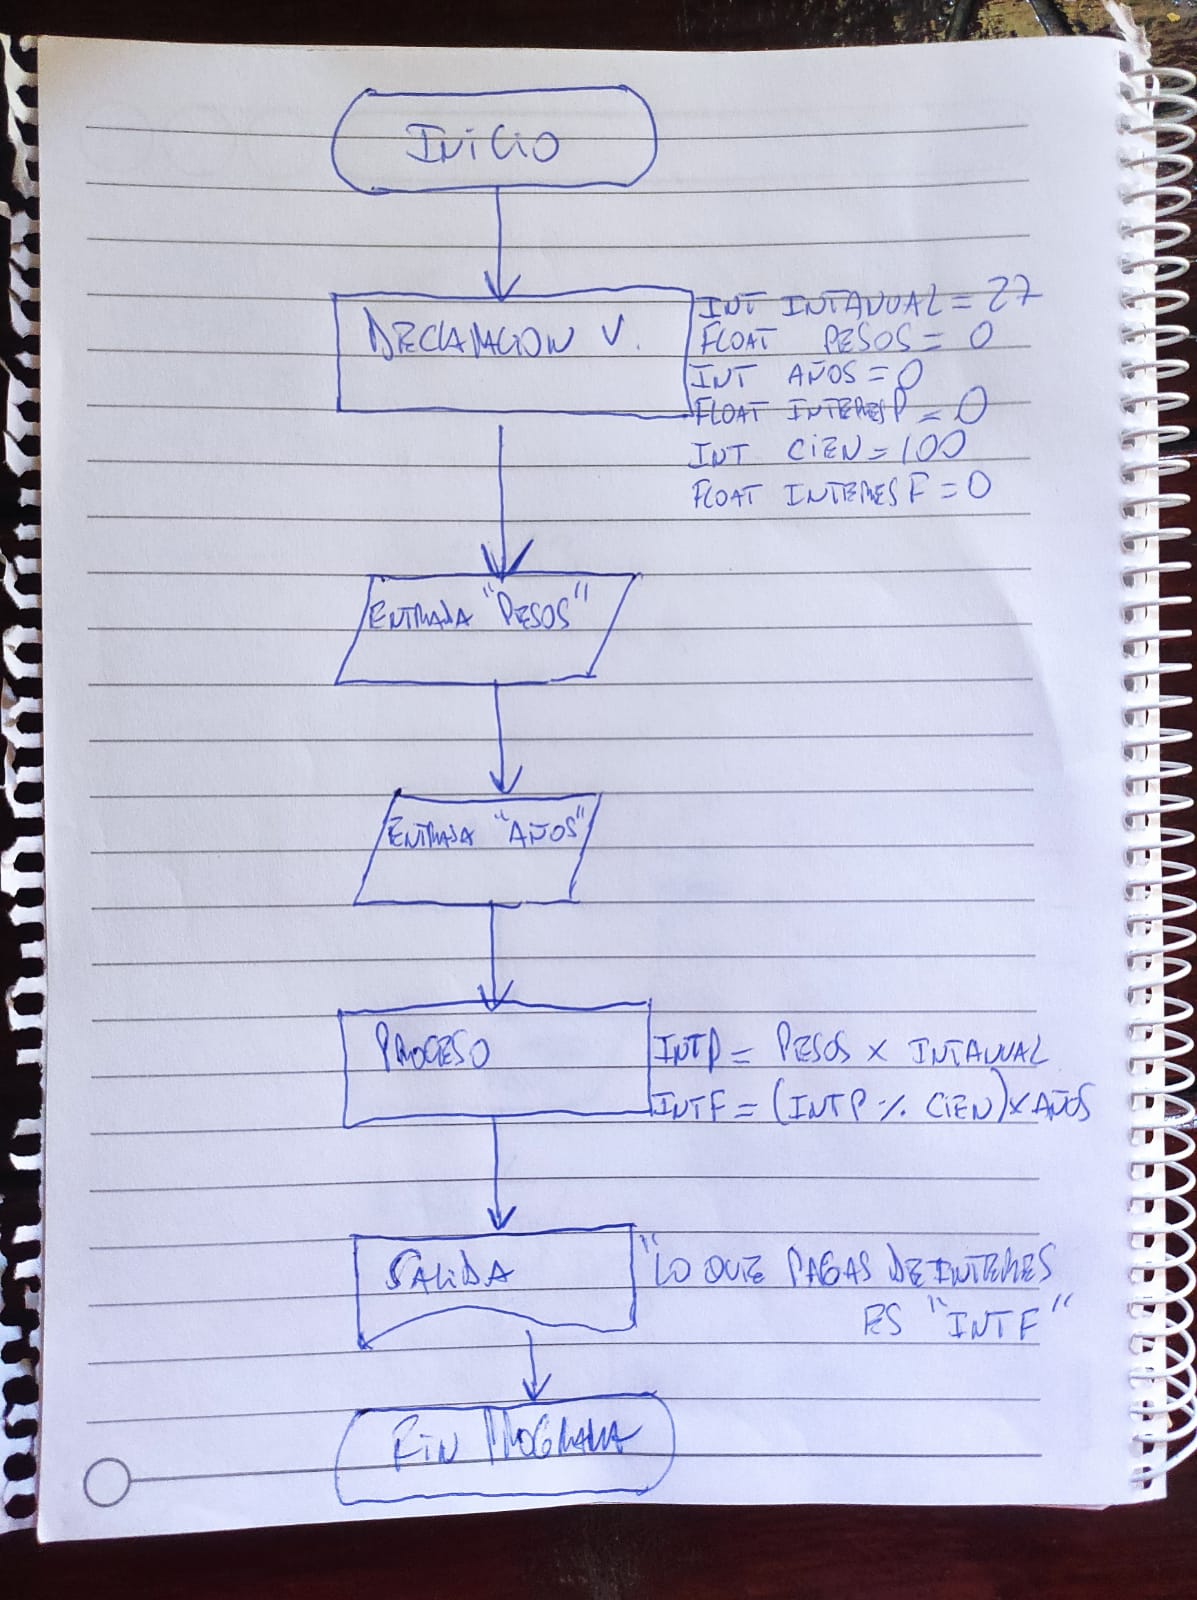 INICIO
DECLARACION V.
INT INTANUAL = 27
FLOAT PESOS = 0
INT AÑOS = 0
FLOAT INTERESP = 0
INT CIEN = 100
FLOAT INTERESF = 0
ENTRADA "PESOS"
ENTRADA "AÑOS"
PROCESO
INTP = PESOS x INTANUAL
INTF = (INTP % CIEN) x AÑOS
SALIDA
"LO QUE PAGAS DE INTERES
ES "INTF"
FIN PROGRAMA